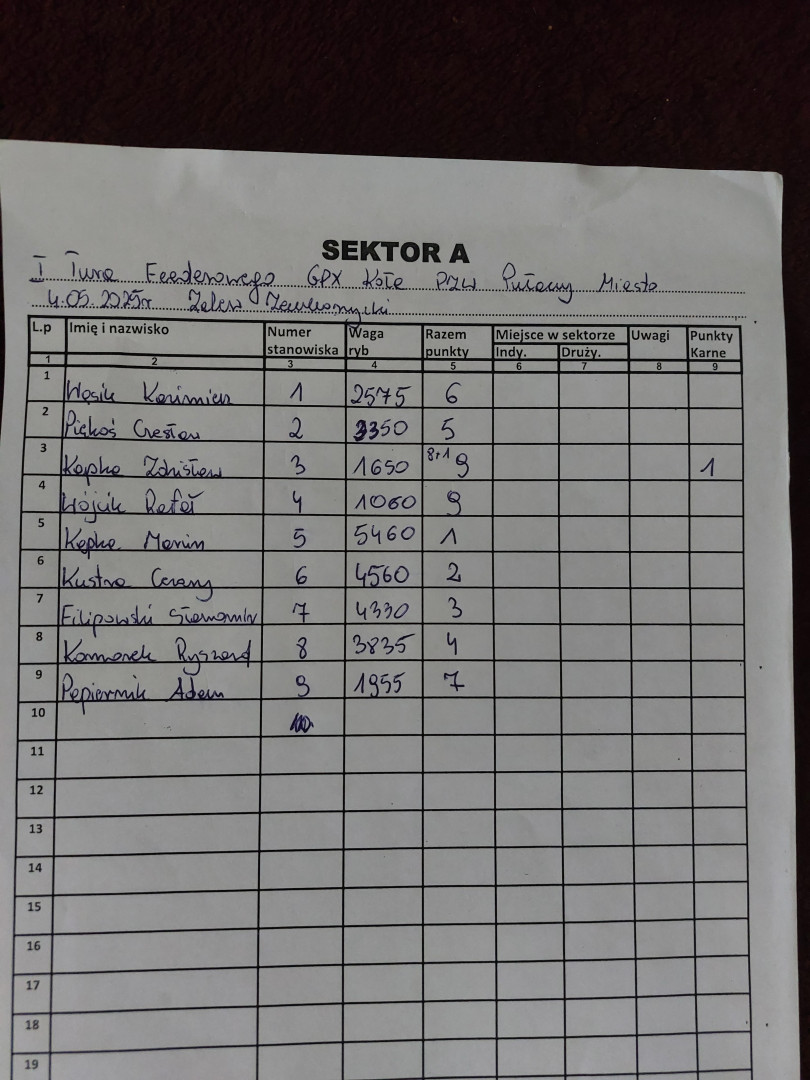 SEKTOR A
I Tura Feederowego GPX Koła PZW Puławy Miasto
4.05.2025r Zalew
L.p Imię i nazwisko Numer stanowiska Waga ryb Razem punkty Miejsce w sektorze Indy. Druży. Uwagi Punkty Karne
1 2 3 4 5 6 7 8 9
1 Wąsik Kazimierz 1 2575 6
2 Piękoś Czesław 2 3350 5
3 Kapka Zdzisław 3 1650 8+1 9 1
4 Wójcik Rafał 4 1060 9
5 Kapka Marcin 5 5460 1
6 Kustra Cezary 6 4560 2
7 Filipowski Sławomir 7 4330 3
8 Komorek Ryszard 8 3835 4
9 Papiernik Adam 9 1955 7
10
11
12
13
14
15
16
17
18
19